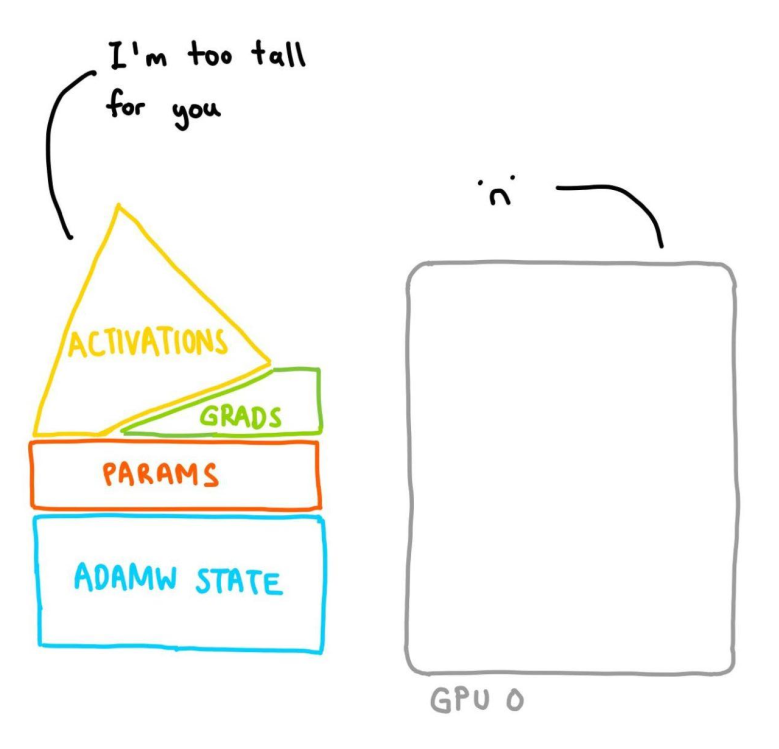 I'm too tall
for you
ACTIVATIONS
GRADS
PARAMS
ADAMW STATE
GPU 0